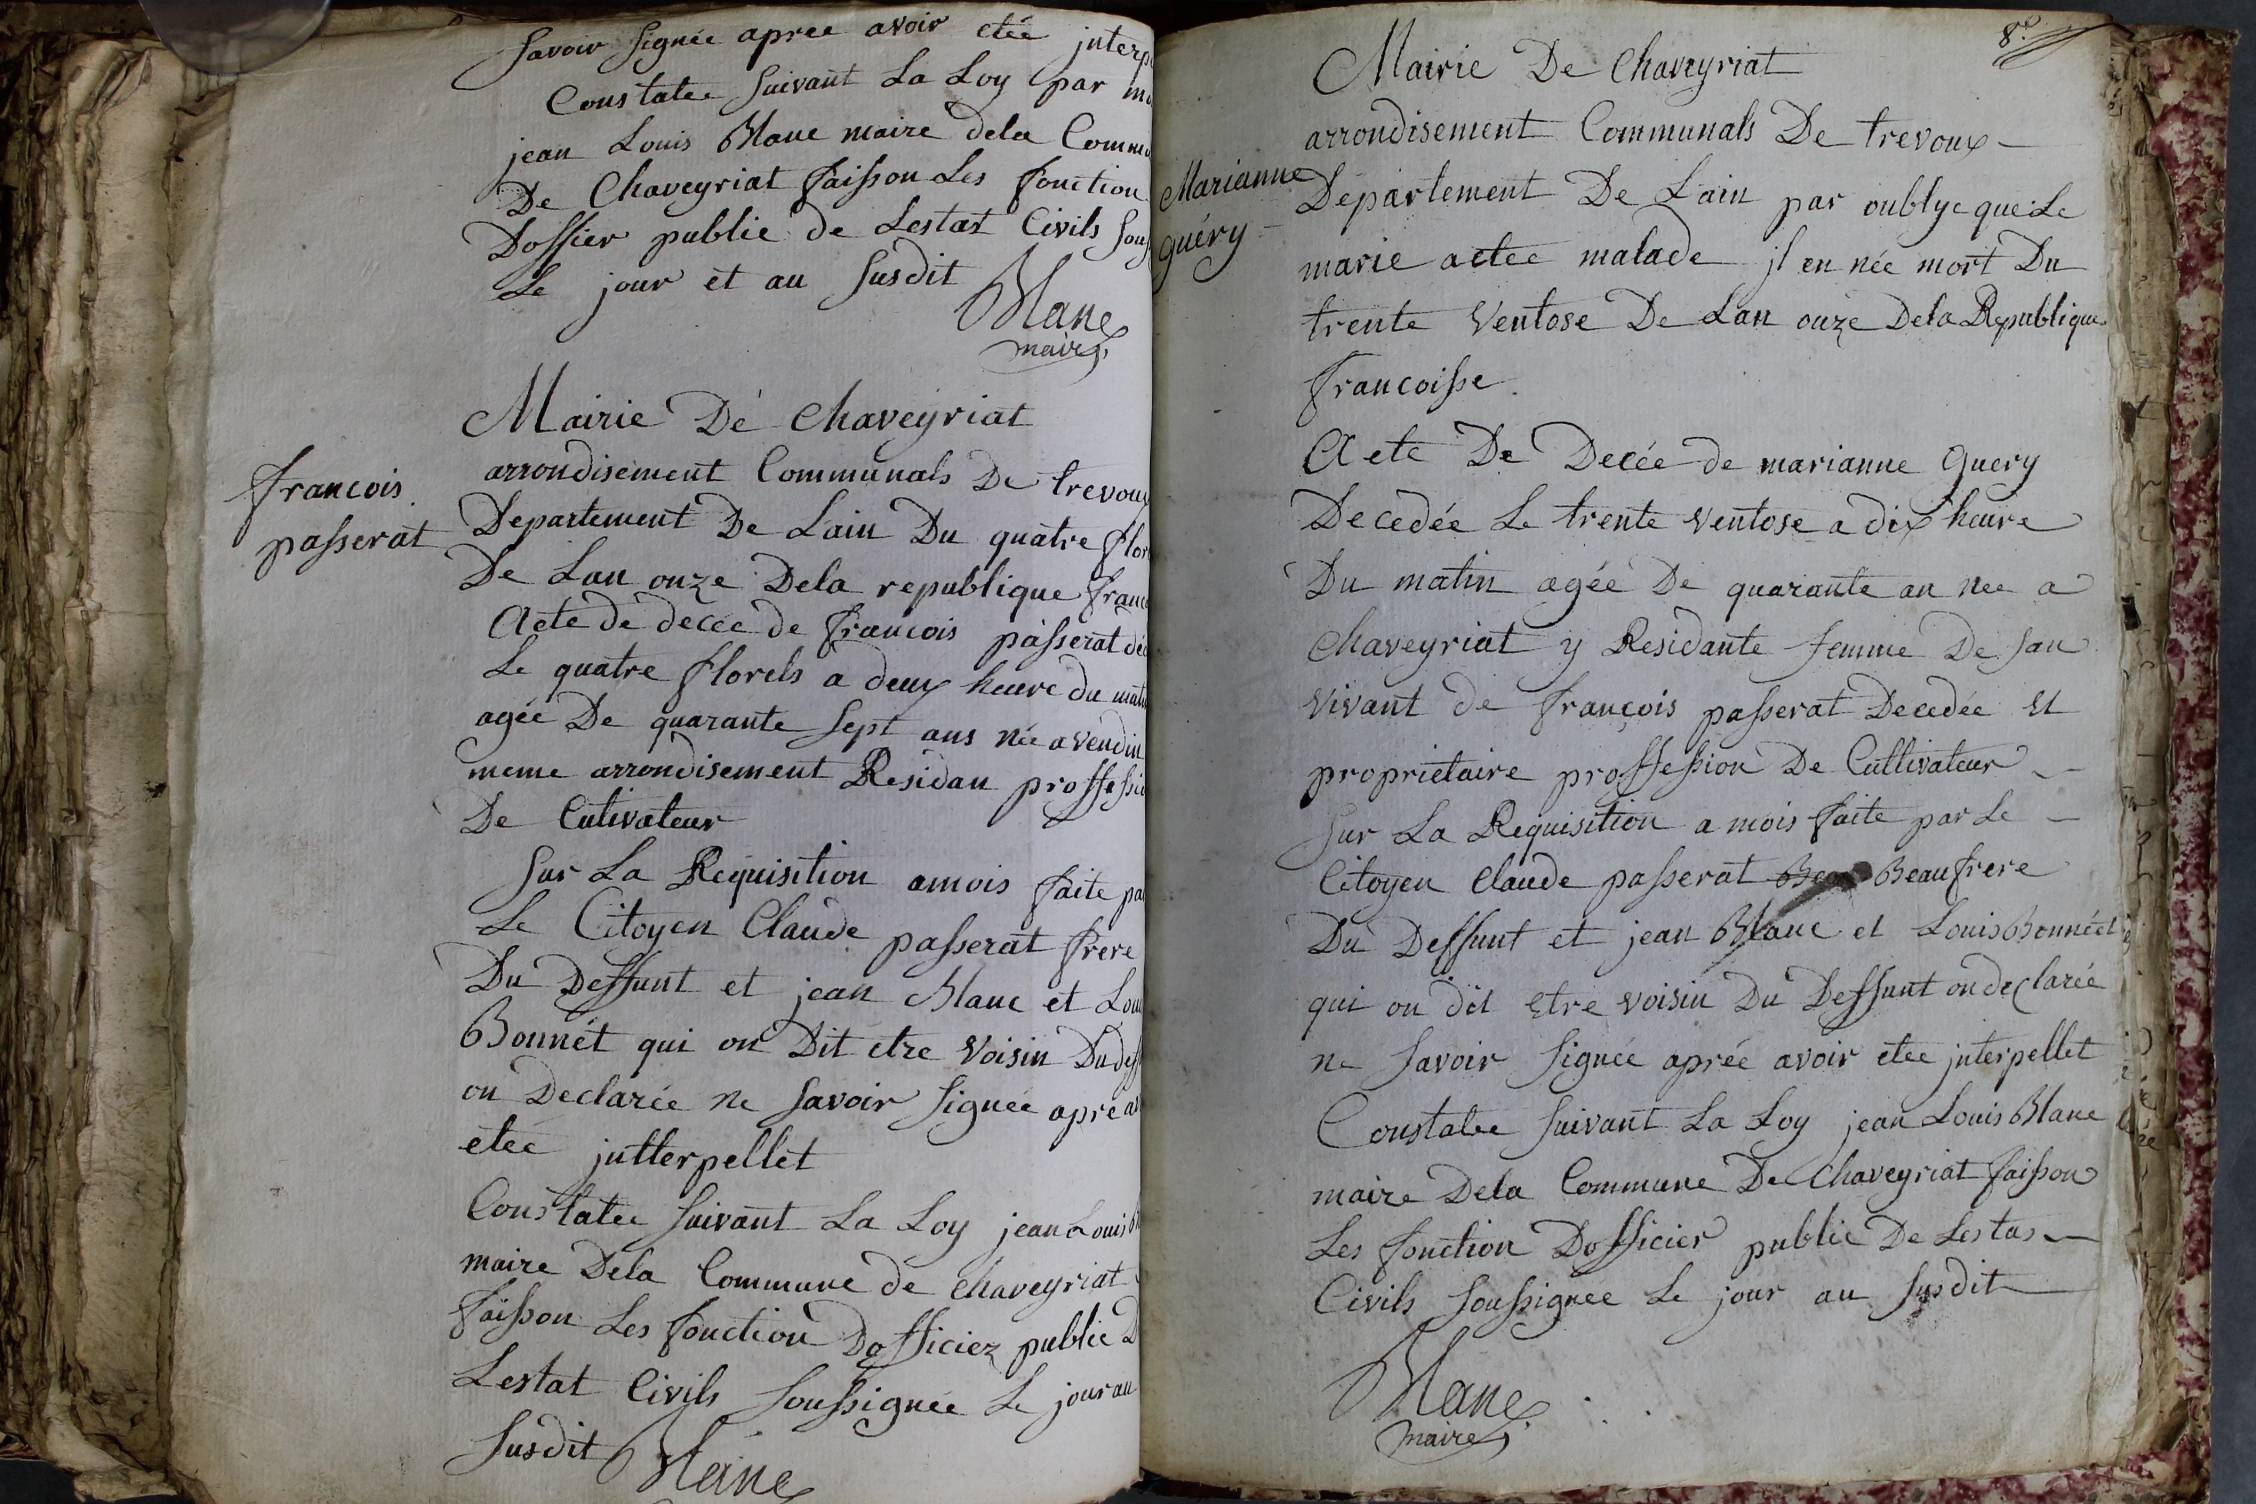 Savoir Signée apree avoir etée jnterp
Constatee Suivant La Loy par mo
jean Louis Blanc maire dela Commu
De Chaveyriat faisson Les fonction
Dossier public de Lestat Civils Sous
Le jour et au Susdit
Blanc
maire
Mairie De Chaveyriat
françois
passerat
arrondisement Communals De trevoux
Departement De Lain Du quatre flor
De Lan onze Dela republique franc
Acte de decée de françois passerat déc
Le quatre florels a deux heure du matin
agée De quarante Sept ans née a vendin
meme arrondisement Residan proffessio
De Cutivateur
Sur La Requisition amois faite par
Le Citoyen Claude passerat frere
Du Deffunt et jean Blanc et Loui
Bonnét qui on Dit etre Voisin Du deff
on Declarée ne Savoir Signée apré av
etée jntterpellét
Constatee Suivant La Loy jean Louis Bl
maire Dela Commune de Chaveyriat
faisson Les fonction Dofficiez public D
Lestat Civils Soussignée Le jour au
Susdit
Blanc
8.
Mairie De Chaveyriat
arrondisement Communals De trevoux
Marianne
guéry
Departement De Lain par oublye que Le
marie a etee malade jl en née mort Du
trente Ventose De Lan onze Dela Republique
francoisse.
Acte De Decée de marianne Guery
Decedée Le trente ventose a dix heure
Du matin agée De quarante an nee a
Chaveyriat y Residante femme De San
vivant de françois passerat Decedée Et
proprietaire proffession De Cultivateur
Sur La Requisition a mois faite par Le
Citoyen Claude passerat Beaufrere
Du Deffunt et jean Blanc et Louis Bonnéet
qui on dit Etre voisin Du Deffunt on declarée
ne Savoir Signée aprée avoir etée jnterpellet
Constatee Suivant La Loy jean Louis Blanc
maire Dela Commune De Chaveyriat faisson
Les fonction Dofficier public De Lestas
Civils Soussignee Le jour au Susdit
Blanc
maire